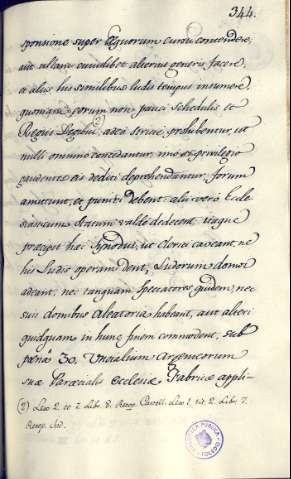 344.
sponsione super Equorum cursu contendere,
aut ullam cuiuslibet alterius generis facere,
et alijs his similibus ludis tempus insumere
quoniam forum non pauci schedulis et
Regijs Legibus (2) adeò strictè prohibentur, ut
nulli omninò concedantur, imò et privilegio
gaudentes eis dediti deprehendantur, forum
amittunt, et puniri debent: alij verò Eccle
siasticum Statum valdè dedecent, itaque
præcipit hæc Synodus, ut Clerici caveant, ne
his Ludis operam dent, Ludorum domos
adeant, nec tanquam spectatores quidem, nec
suis domibus Aleatoria habeant, aut alteri
quidquam in hunc finem commodent, sub
pœna 30. Uncialium Argenteorum
suæ Parœcialis Ecclesiæ Fabricæ appli-
(2) Lex 2. tt 7. Libr. 8. Recop. Castell. Lex 1. tit. 2. Libr. 7.
Recop. Ind.
BIBLIOTECA PUBLICA
TOLEDO